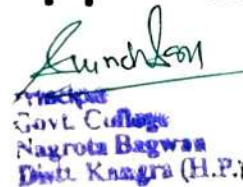 Principal
Govt. College
Nagrota Bagwan
Distt. Kangra (H.P.)